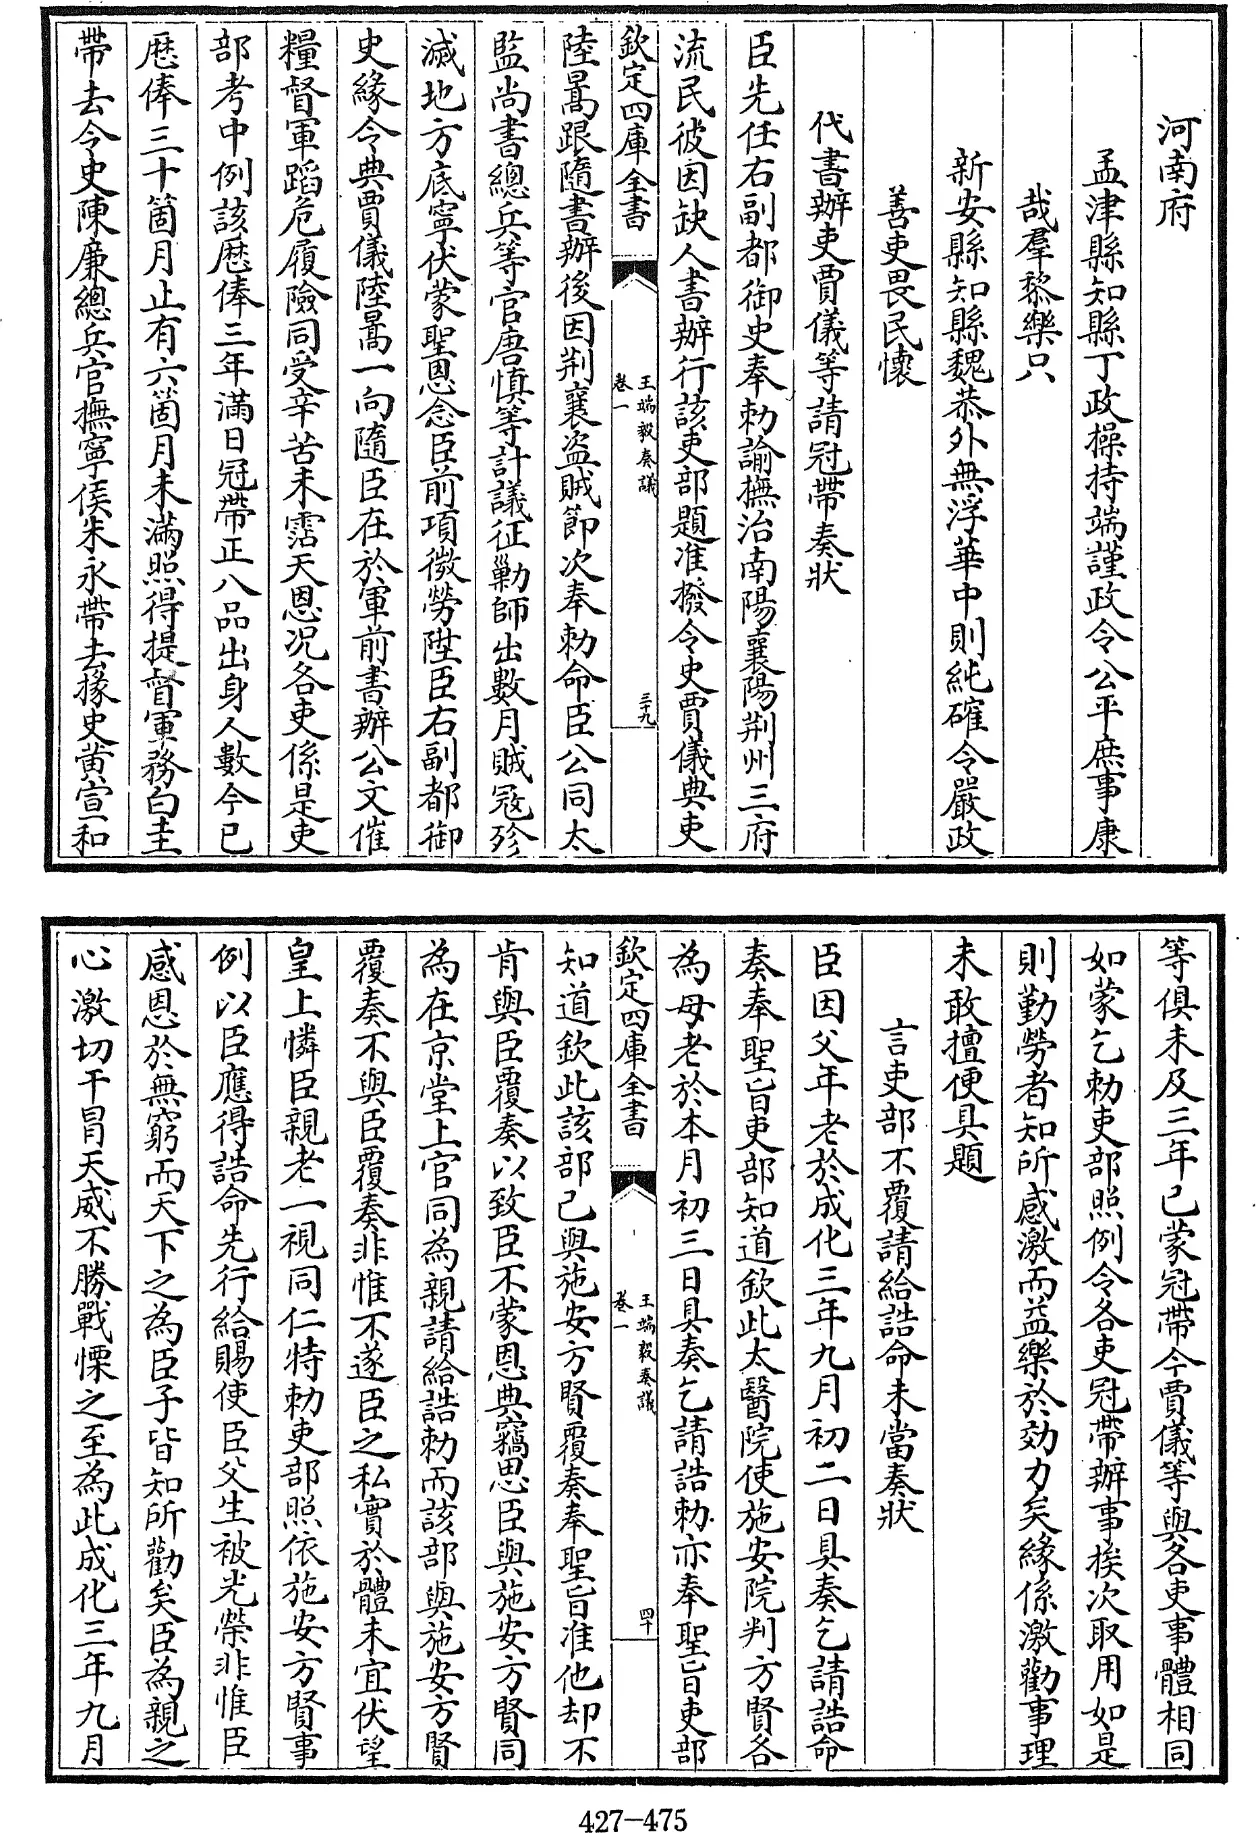 河南府
孟津縣知縣丁政操持端謹政令公平庶事康
哉羣黎樂只
新安縣知縣魏恭外無浮華中則純確令嚴政
善吏畏民懷
代書辦吏賈儀等請冠帶奏狀
臣先任右副都御史奉勅諭撫治南陽襄陽荆州三府
流民彼因缺人書辦行該吏部題准撥令史賈儀典吏
欽定四庫全書
王端毅奏議
卷一
三十九
陸暠跟隨書辦後因荆襄盜賊節次奉勅命臣公同太
監尚書總兵等官唐慎等計議征勦師出數月賊冦殄
滅地方底寧伏蒙聖恩念臣前項微勞陞臣右副都御
史緣令典賈儀陸暠一向隨臣在於軍前書辦公文催
糧督軍蹈危履險同受辛苦未霑天恩况各吏係是吏
部考中例該厯俸三年滿日冠帶正八品出身人數今已
厯俸三十箇月止有六箇月未滿照得提督軍務白圭
帶去令史陳廉總兵官撫寧侯朱永帶去掾史黄宣和
等俱未及三年已蒙冠帶今賈儀等與各吏事體相同
如蒙乞勅吏部照例令各吏冠帶辦事挨次取用如是
則勤勞者知所感激而益樂於効力矣緣係激勸事理
未敢擅便具題
言吏部不覆請給誥命未當奏狀
臣因父年老於成化三年九月初二日具奏乞請誥命
奏奉聖旨吏部知道欽此太醫院使施安院判方賢各
為母老於本月初三日具奏乞請誥勅亦奉聖旨吏部
欽定四庫全書
王端毅奏議
卷一
四十
知道欽此該部已與施安方賢覆奏奉聖旨准他却不
肯與臣覆奏以致臣不蒙恩典竊思臣與施安方賢同
為在京堂上官同為親請給誥勅而該部與施安方賢
覆奏不與臣覆奏非惟不遂臣之私實於體未宜伏望
皇上憐臣親老一視同仁特勅吏部照依施安方賢事
例以臣應得誥命先行給賜使臣父生被光榮非惟臣
感恩於無窮而天下之為臣子皆知所勸矣臣為親之
心激切干冒天威不勝戰慄之至為此成化三年九月
427-475